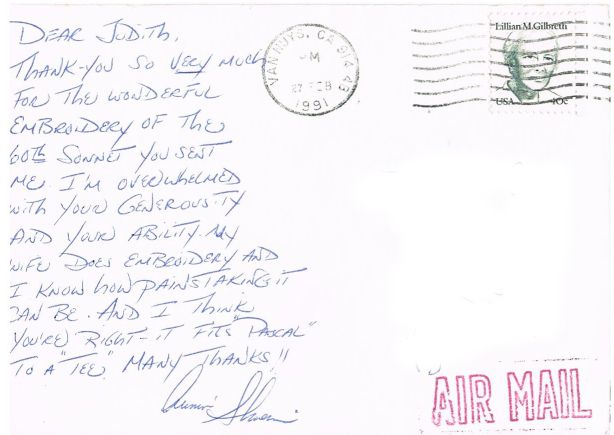 DEAR JUDITH,
THANK-YOU SO VERY MUCH
FOR THE WONDERFUL
EMBROIDERY OF THE
60th SONNET YOU SENT
ME. I'M OVERWHELMED
WITH YOUR GENEROUSITY
AND YOUR ABILITY. MY
WIFE DOES EMBROIDERY AND
I KNOW HOW PAINSTAKING IT
CAN BE. AND I THINK
YOU'RE RIGHT-IT FITS "PASCAL"
TO A "TEE" MANY THANKS!!
VAN NUYS, CA 914
PM
27 FEB
1991
Lillian M. Gilbreth
USA 40c
AIR MAIL